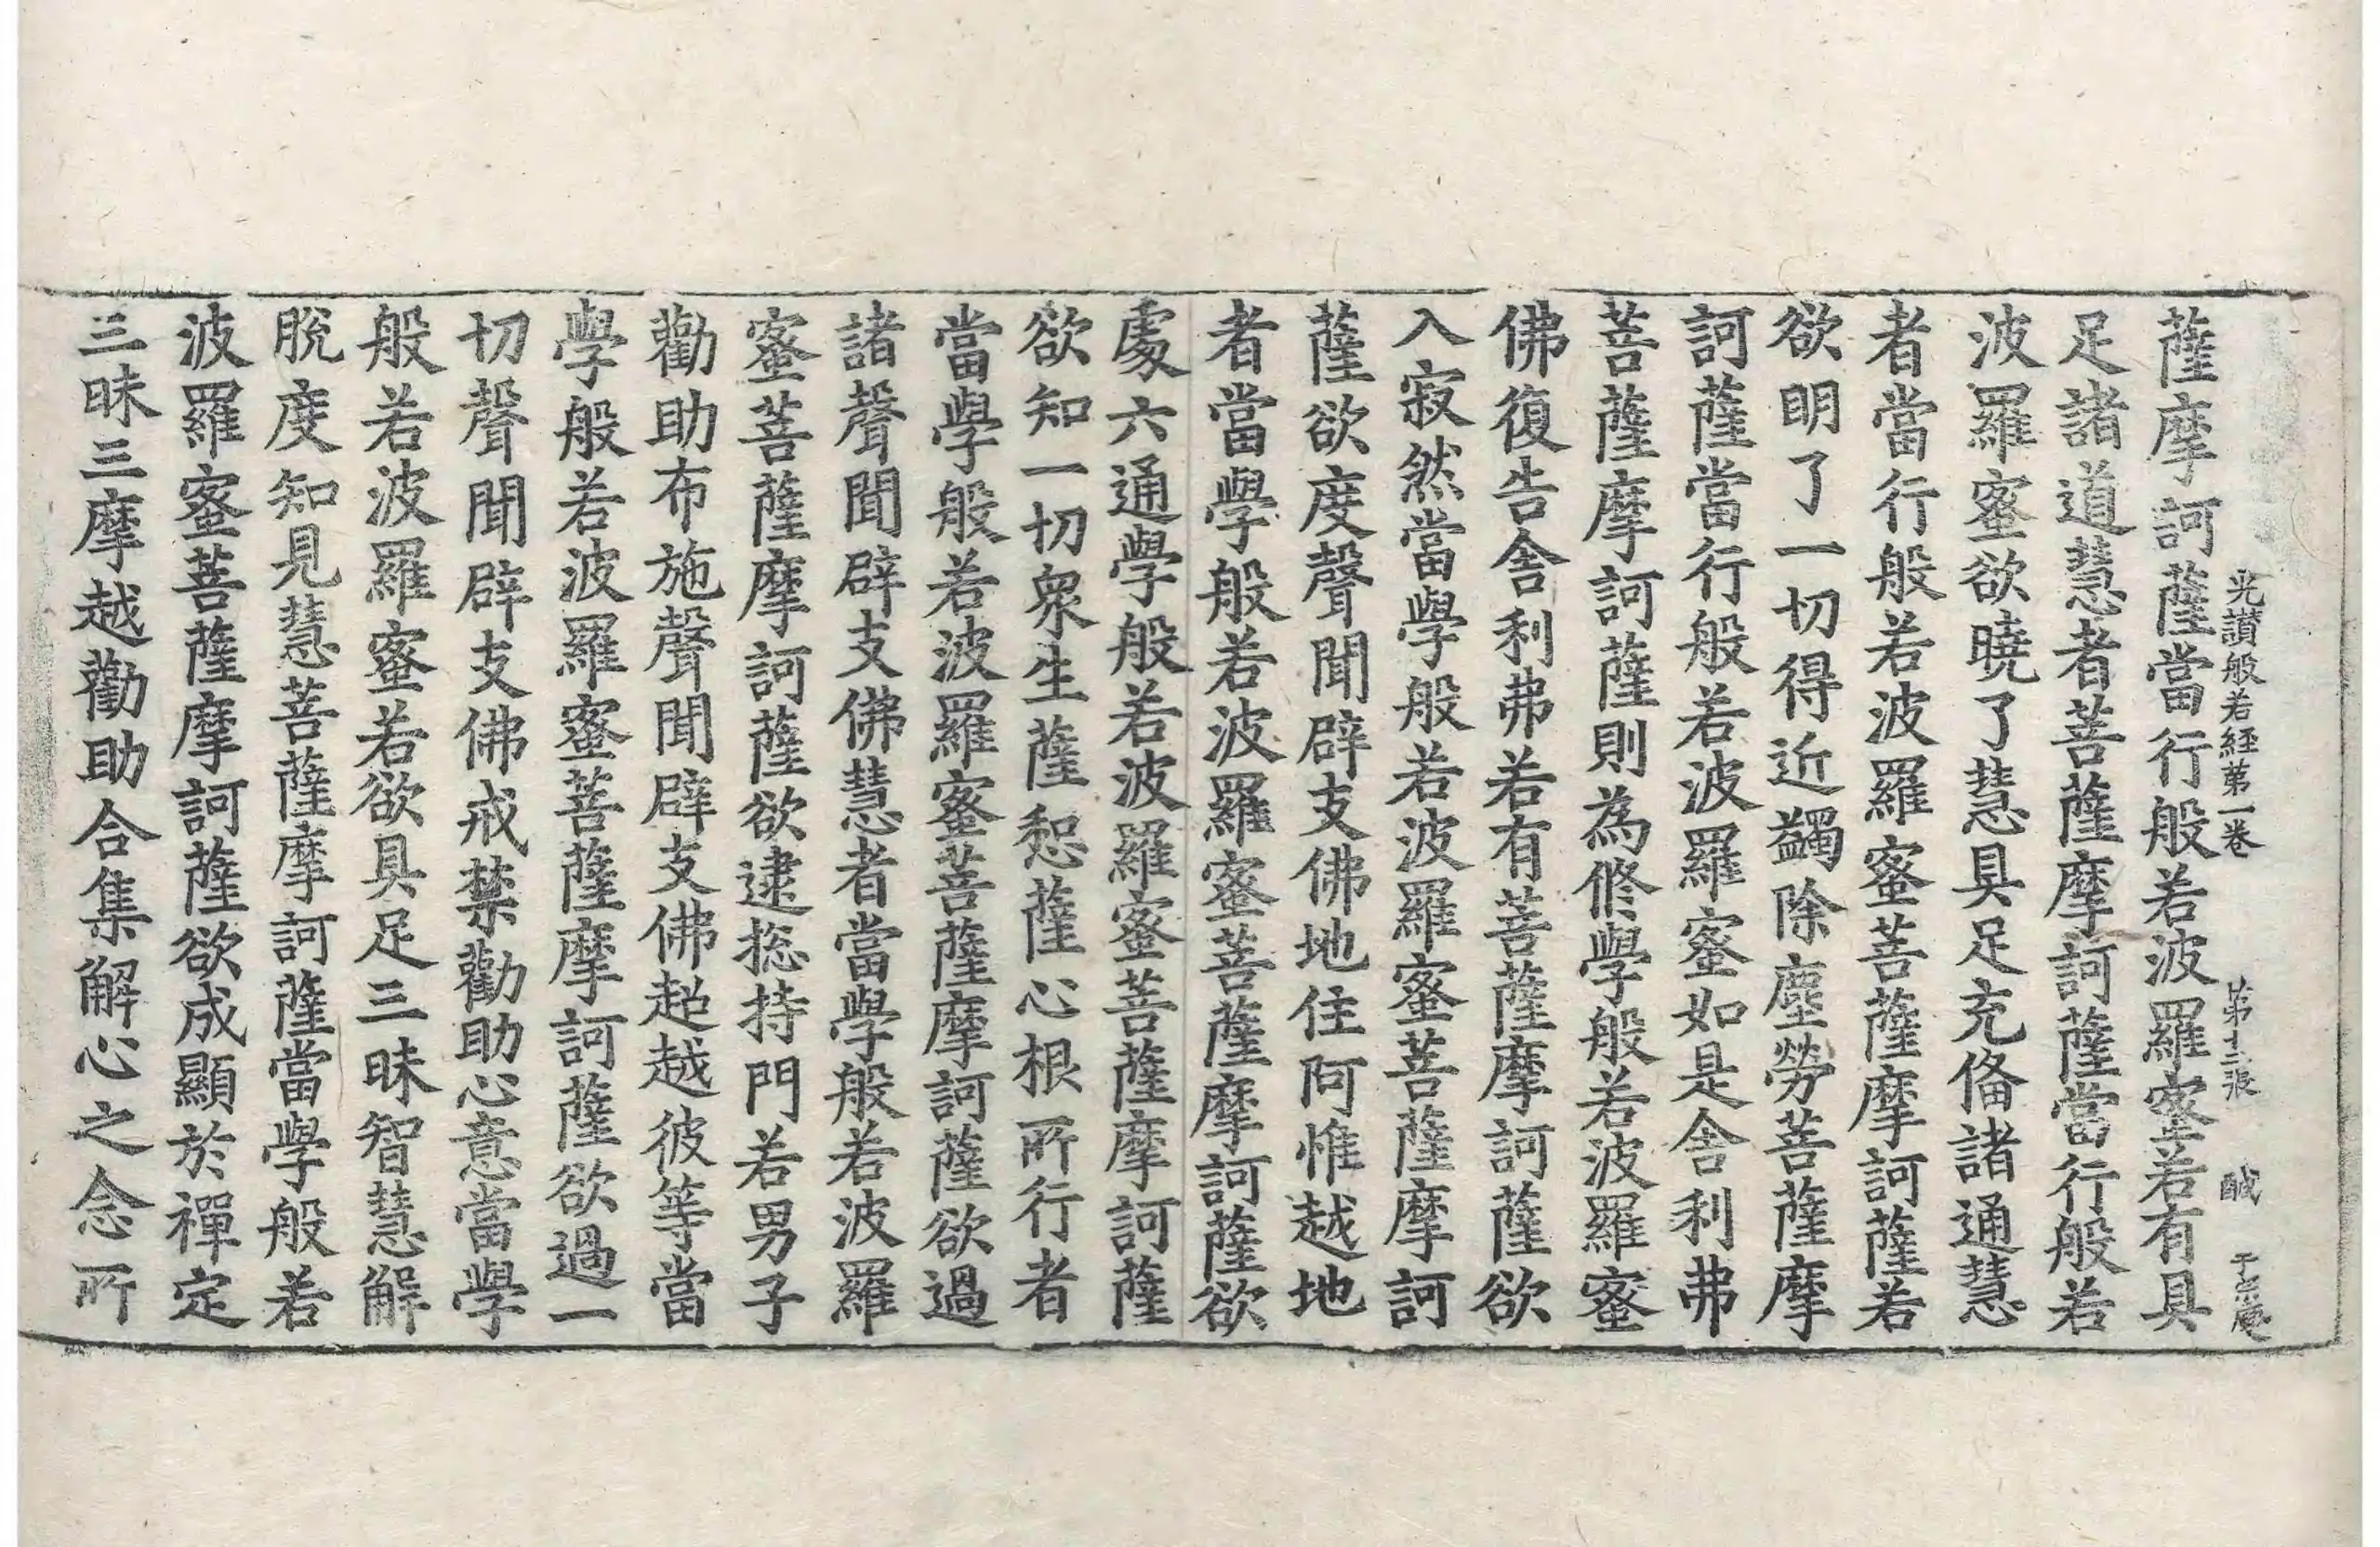 光讃般若経苐一巻 苐十三張 醎
薩摩訶薩當行般若波羅蜜若有具
足諸道慧者菩薩摩訶薩當行般若
波羅蜜欲曉了慧具足充俻諸通慧
者當行般若波羅蜜菩薩摩訶薩若
欲明了一切得近蠲除塵勞菩薩摩
訶薩當行般若波羅蜜如是舎利弗
菩薩摩訶薩則為修學般若波羅蜜
佛復告舎利弗若有菩薩摩訶薩欲
入寂然當學般若波羅蜜菩薩摩訶
薩欲度聲聞辟支佛地住阿惟越地
者當學般若波羅蜜菩薩摩訶薩欲
處六通學般若波羅蜜菩薩摩訶薩
欲知一切衆生薩惒薩心根所行者
當學般若波羅蜜菩薩摩訶薩欲過
諸聲聞辟支佛慧者當學般若波羅
蜜菩薩摩訶薩欲逮捴持門若男子
勸助布施聲聞辟支佛超越彼等當
學般若波羅蜜菩薩摩訶薩欲過一
切聲聞辟支佛戒禁勸助心意當學
般若波羅蜜若欲具足三昧智慧解
脫度知見慧菩薩摩訶薩當學般若
波羅蜜菩薩摩訶薩欲成顯於禪定
三昧三摩越勸助合集解心之念所